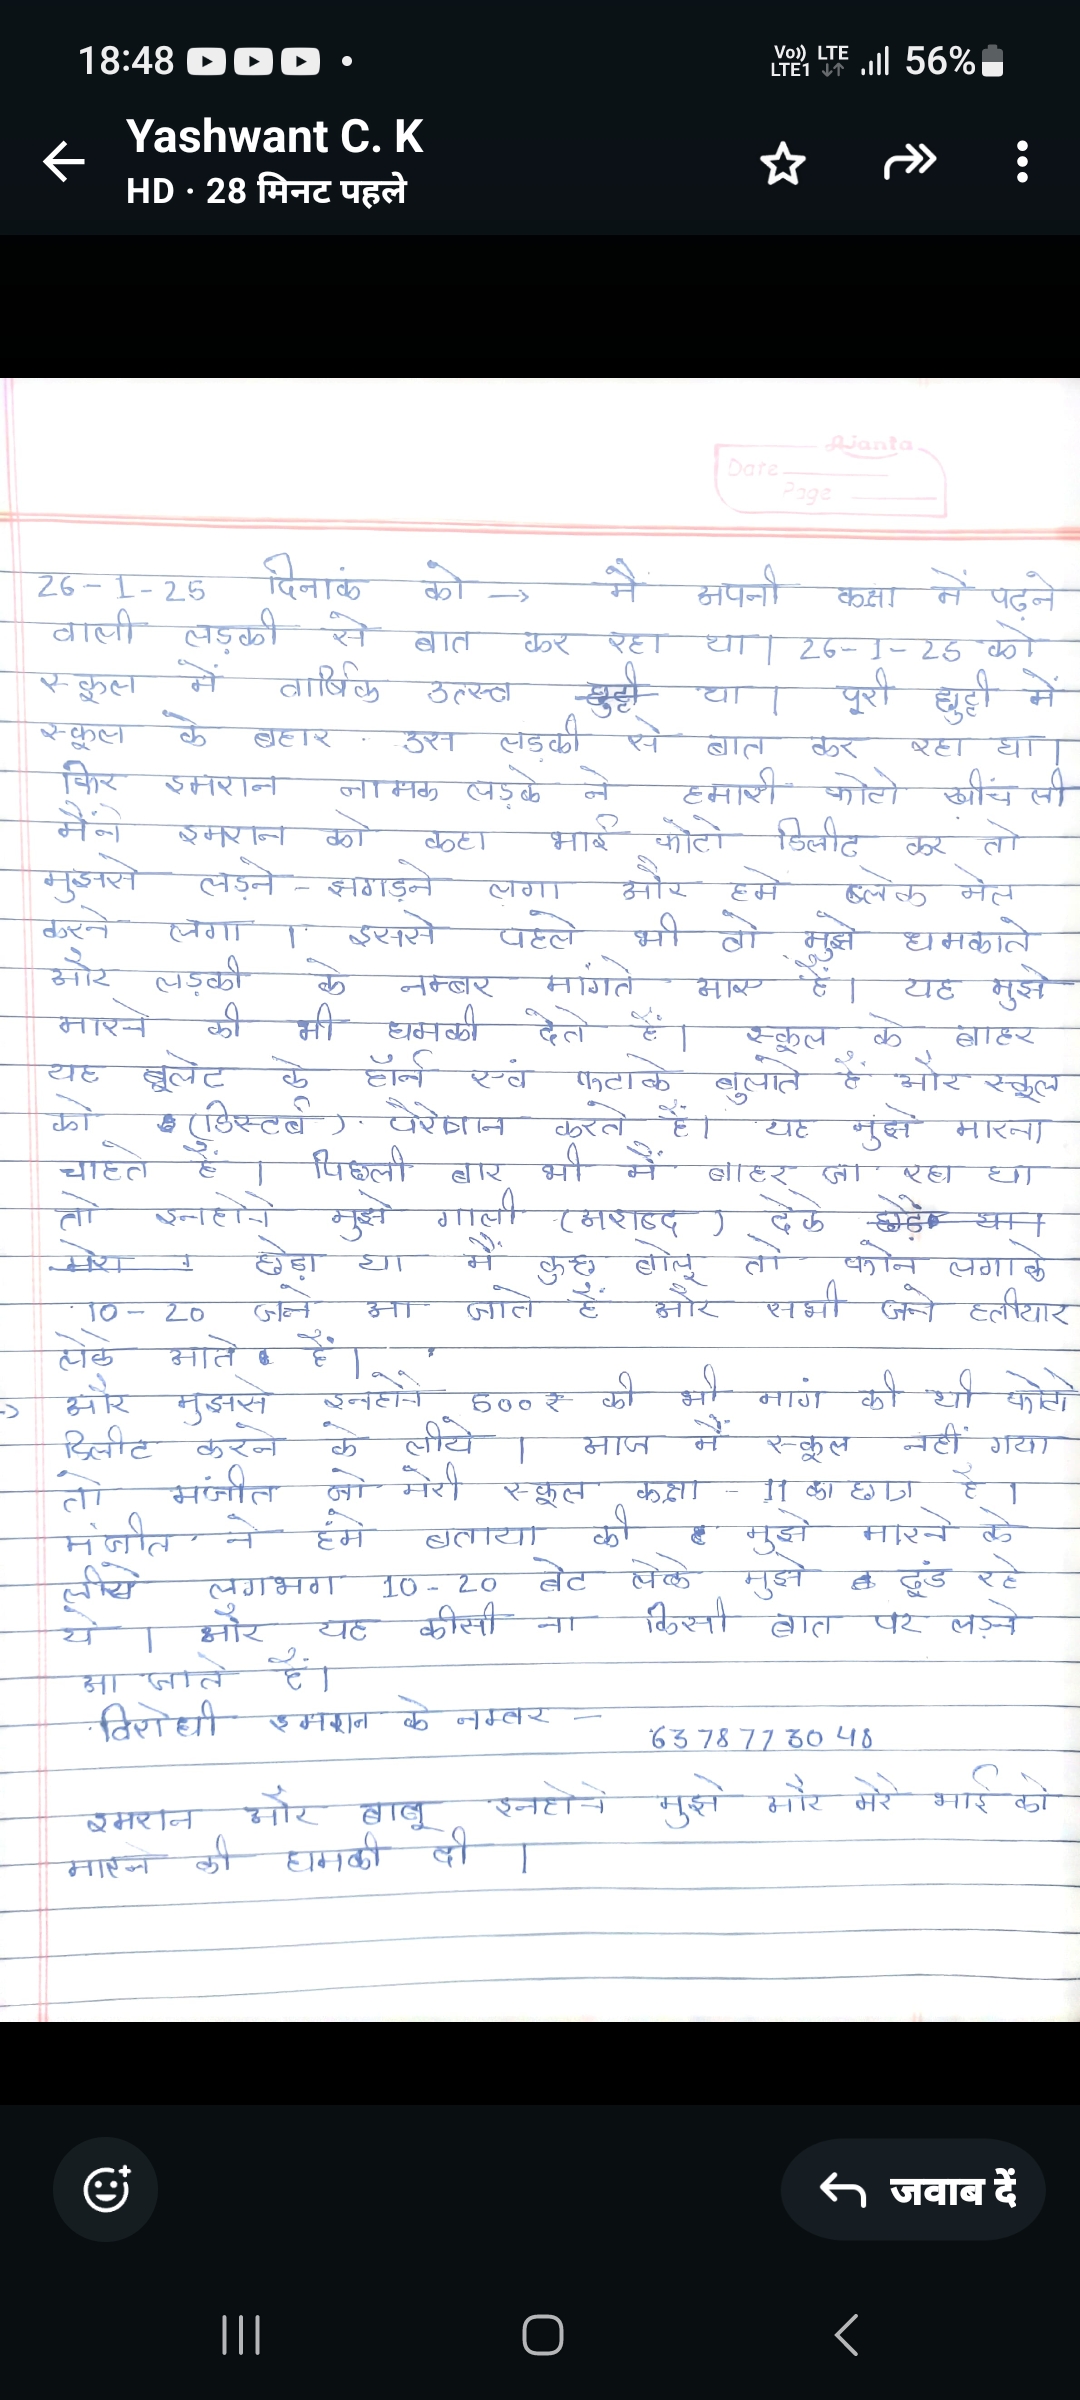 18:48
Vo)) LTE
LTE1
56%
Yashwant C. K
HD · 28 मिनट पहले
Ajanta
Date
Page
26-1-25 दिनांक को → मै अपनी कक्षा में पढ़ने
वाली लड़की से बात कर रहा था। 26-1-25 को
स्कूल में वार्षिक उत्स्व छुट्टी था। पूरी छुट्टी में
स्कूल के बहार उस लड़की से बात कर रहा था।
फिर इमरान नामक लड़के ने हमारी फोटो खींच ली
मैंने इमरान को कहा भाई फोटो डिलीट कर तो
मुझसे लड़ने-झगड़ने लगा और हमे ब्लेक मेल
करने लगा। इससे पहले भी वो मुझे धमकाते
और लड़की के नम्बर मांगते आए हैं। यह मुझे
मारने की भी धमकी देते हैं। स्कूल के बाहर
यह बूलेट के हॉर्न एवं फटाके बुलाते हैं और स्कूल
को (डिस्टर्ब) पेरेशान करते हैं। यह मुझे मारना
चाहते हैं। पिछली बार भी मैं बाहर जा रहा था
तो इनहोने मुझे गाली (अशब्द) देके छेड़े था।
मेरा छेड़ा था मैं कुछ बोलू तो फोन लगाके
10-20 जने आ जाते हैं और सभी जने हतीयार
लेके आते हैं।
→ और मुझसे इनहोने 500₹ की भी मांग की थी फोटो
डिलीट करने के लीये। आज मैं स्कूल नहीं गया
तो मंजीत जो मेरी स्कूल कक्षा - 11 का छात्र है।
मंजीत ने हंमे बताया की मुझे मारने के
लीये लगभग 10-20 बेट लेके मुझे ढूंड रहे
थे। और यह कीसी ना किसी बात पर लड़ने
आ जाते हैं।
विरोधी इमरान के नम्बर - 6378773048
इमरान और बाबू इनहोने मुझे और मेरे भाई को
मारने की धमकी दी।
जवाब दें